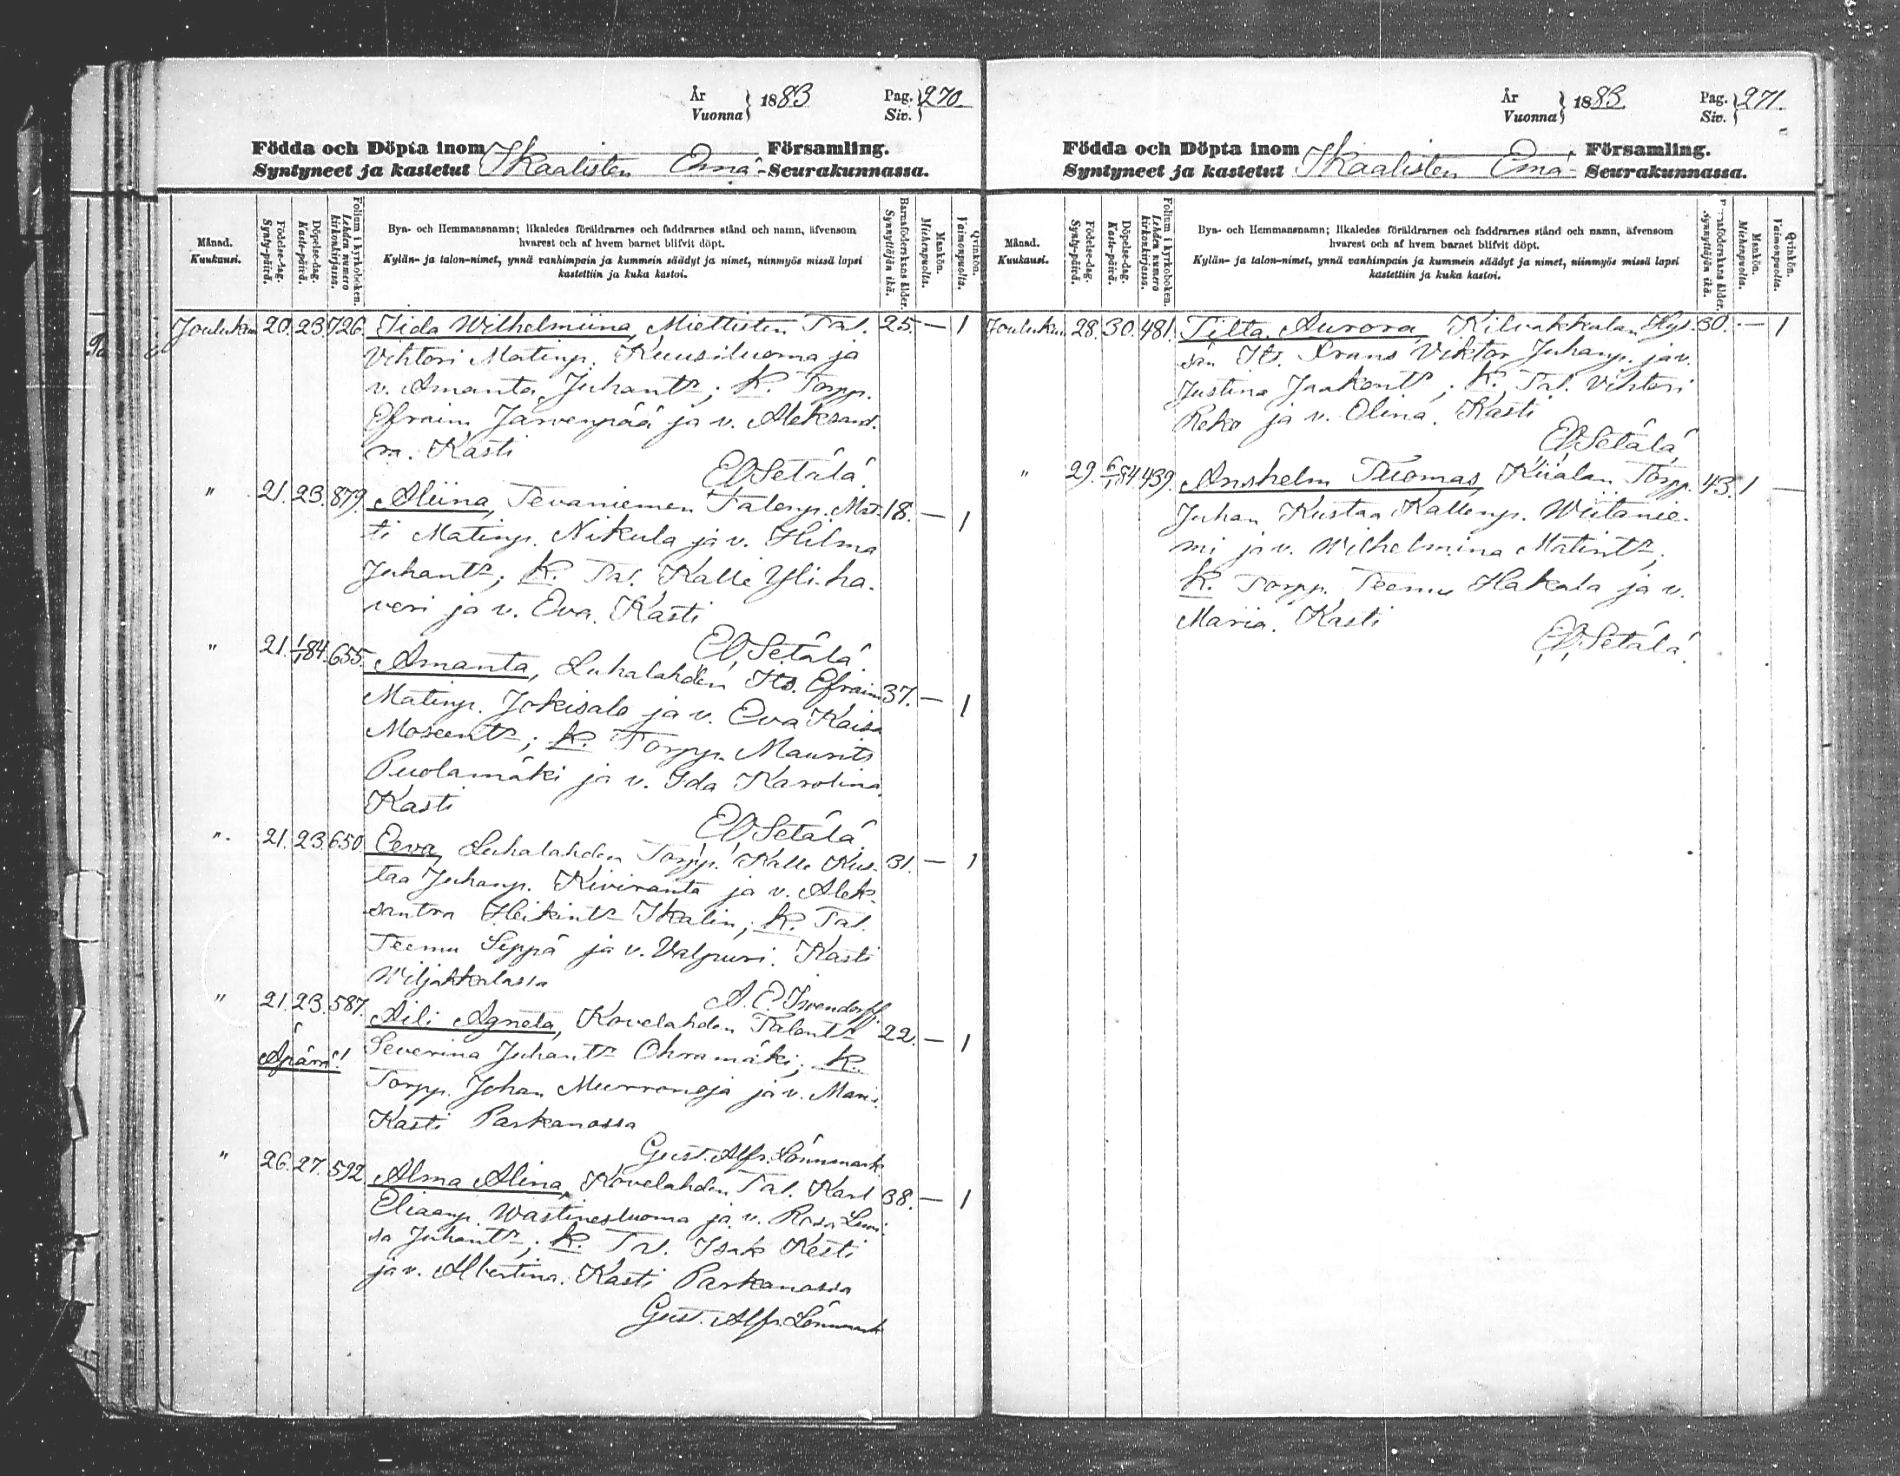 År
Vuonna } 1883 Pag.
Siv. } 270.
Födda och Döpta inom Ikaalisten Emä- Församling.
Syntyneet ja kastetut Seurakunnassa.
Månad.
Kuukausi.
Födelse-dag.
Synty-päivä.
Döpelse-dag.
Kaste-päivä.
Folium i kyrkoboken.
Lehden numero kirkonkirjassa.
Bya- och Hemmansnamn; likaledes föräldrarnes och faddrarnes stånd och namn, äfvensom
hvarest och af hvem barnet blifvit döpt.
Kylän- ja talon-nimet, ynnä vanhimpain ja kummein säädyt ja nimet, niinmyös missä lapsi
kastettiin ja kuka kastoi.
Barnaföderskans ålder.
Synnyttäjän ikä.
Mankön.
Miehenpuolta.
Qvinkön.
Vaimonpuolta.
Jouluk. 20. 23. 726. Iida Wilhelmiina, Miettisten Tal. 25. — 1
Vihtori Matinp. Kuusiluoma ja
v. Amanta Juhant.; K. Torpp.
Efraim Järvenpää ja v. Aleksand-
ra. Kasti
E. Setälä.
" 21. 23. 879. Aliina, Tevaniemen Talonp. Mat- 18. — 1
ti Matinp. Nikula ja v. Hilma
Juhant.; K. Tal. Kalle Yli-ha-
veri ja v. Eva. Kasti
E. Setälä.
" 21. 1/1 84. 655. Amanta, Luhalahden Its. Efraim 37. — 1
Matinp. Jokisalo ja v. Eva Kaisa
Moseent.; K. Torpp. Maurits
Puolamäki ja v. Ida Karolina.
Kasti
E. Setälä.
" 21. 23. 650. Eeva, Luhalahden Torpp. Kalle Kus- 31. — 1
taa Juhanp. Kiviranta ja v. Alek-
santra Heikint. Ikalin; K. Tal.
Teemu Seppä ja v. Valpuri. Kasti
Wiljakkalassa
" 21. 23. 587. Aili Agneta, Kovelahden Talont. 22. — 1
Äpärä! Severina Juhant. Ohramäki; K.
Torpp. Johan Murronoja ja v. Mari.
Kasti Parkanossa
Gust. Alfr. Lönnmark
" 26. 27. 592. Alma Alina, Kovelahden Tal. Karl 38. — 1
Eliaanp. Wästinesluoma ja v. Rosa Lovi-
sa Juhant.; K. Tal. Isak Kesti
ja v. Albertina. Kasti Parkanossa
Gust. Alfr. Lönnmark
År
Vuonna } 1883 Pag.
Siv. } 271.
Födda och Döpta inom Ikaalisten Emä- Församling.
Syntyneet ja kastetut Seurakunnassa.
Månad.
Kuukausi.
Födelse-dag.
Synty-päivä.
Döpelse-dag.
Kaste-päivä.
Folium i kyrkoboken.
Lehden numero kirkonkirjassa.
Bya- och Hemmansnamn; likaledes föräldrarnes och faddrarnes stånd och namn, äfvensom
hvarest och af hvem barnet blifvit döpt.
Kylän- ja talon-nimet, ynnä vanhimpain ja kummein säädyt ja nimet, niinmyös missä lapsi
kastettiin ja kuka kastoi.
Barnaföderskans ålder.
Synnyttäjän ikä.
Mankön.
Miehenpuolta.
Qvinkön.
Vaimonpuolta.
Jouluk. 28. 30. 481. Tilta Aurora, Kilvakkalan Kyl. 30. — 1
Its. Frans Viktor Juhanp. ja v.
Justina Jaakont.; K. Tal. Vihtori
Reko ja v. Olina. Kasti
E. Setälä.
" 29. 6/1 84. 439. Anshelm Thomas, Kiialan Torpp. 43. 1 —
Juhan Kustaa Kallenp. Wiitanie-
mi ja v. Wilhelmina Matint.;
K. Torpp. Teemu Hakala ja v.
Maria. Kasti
E. Setälä.